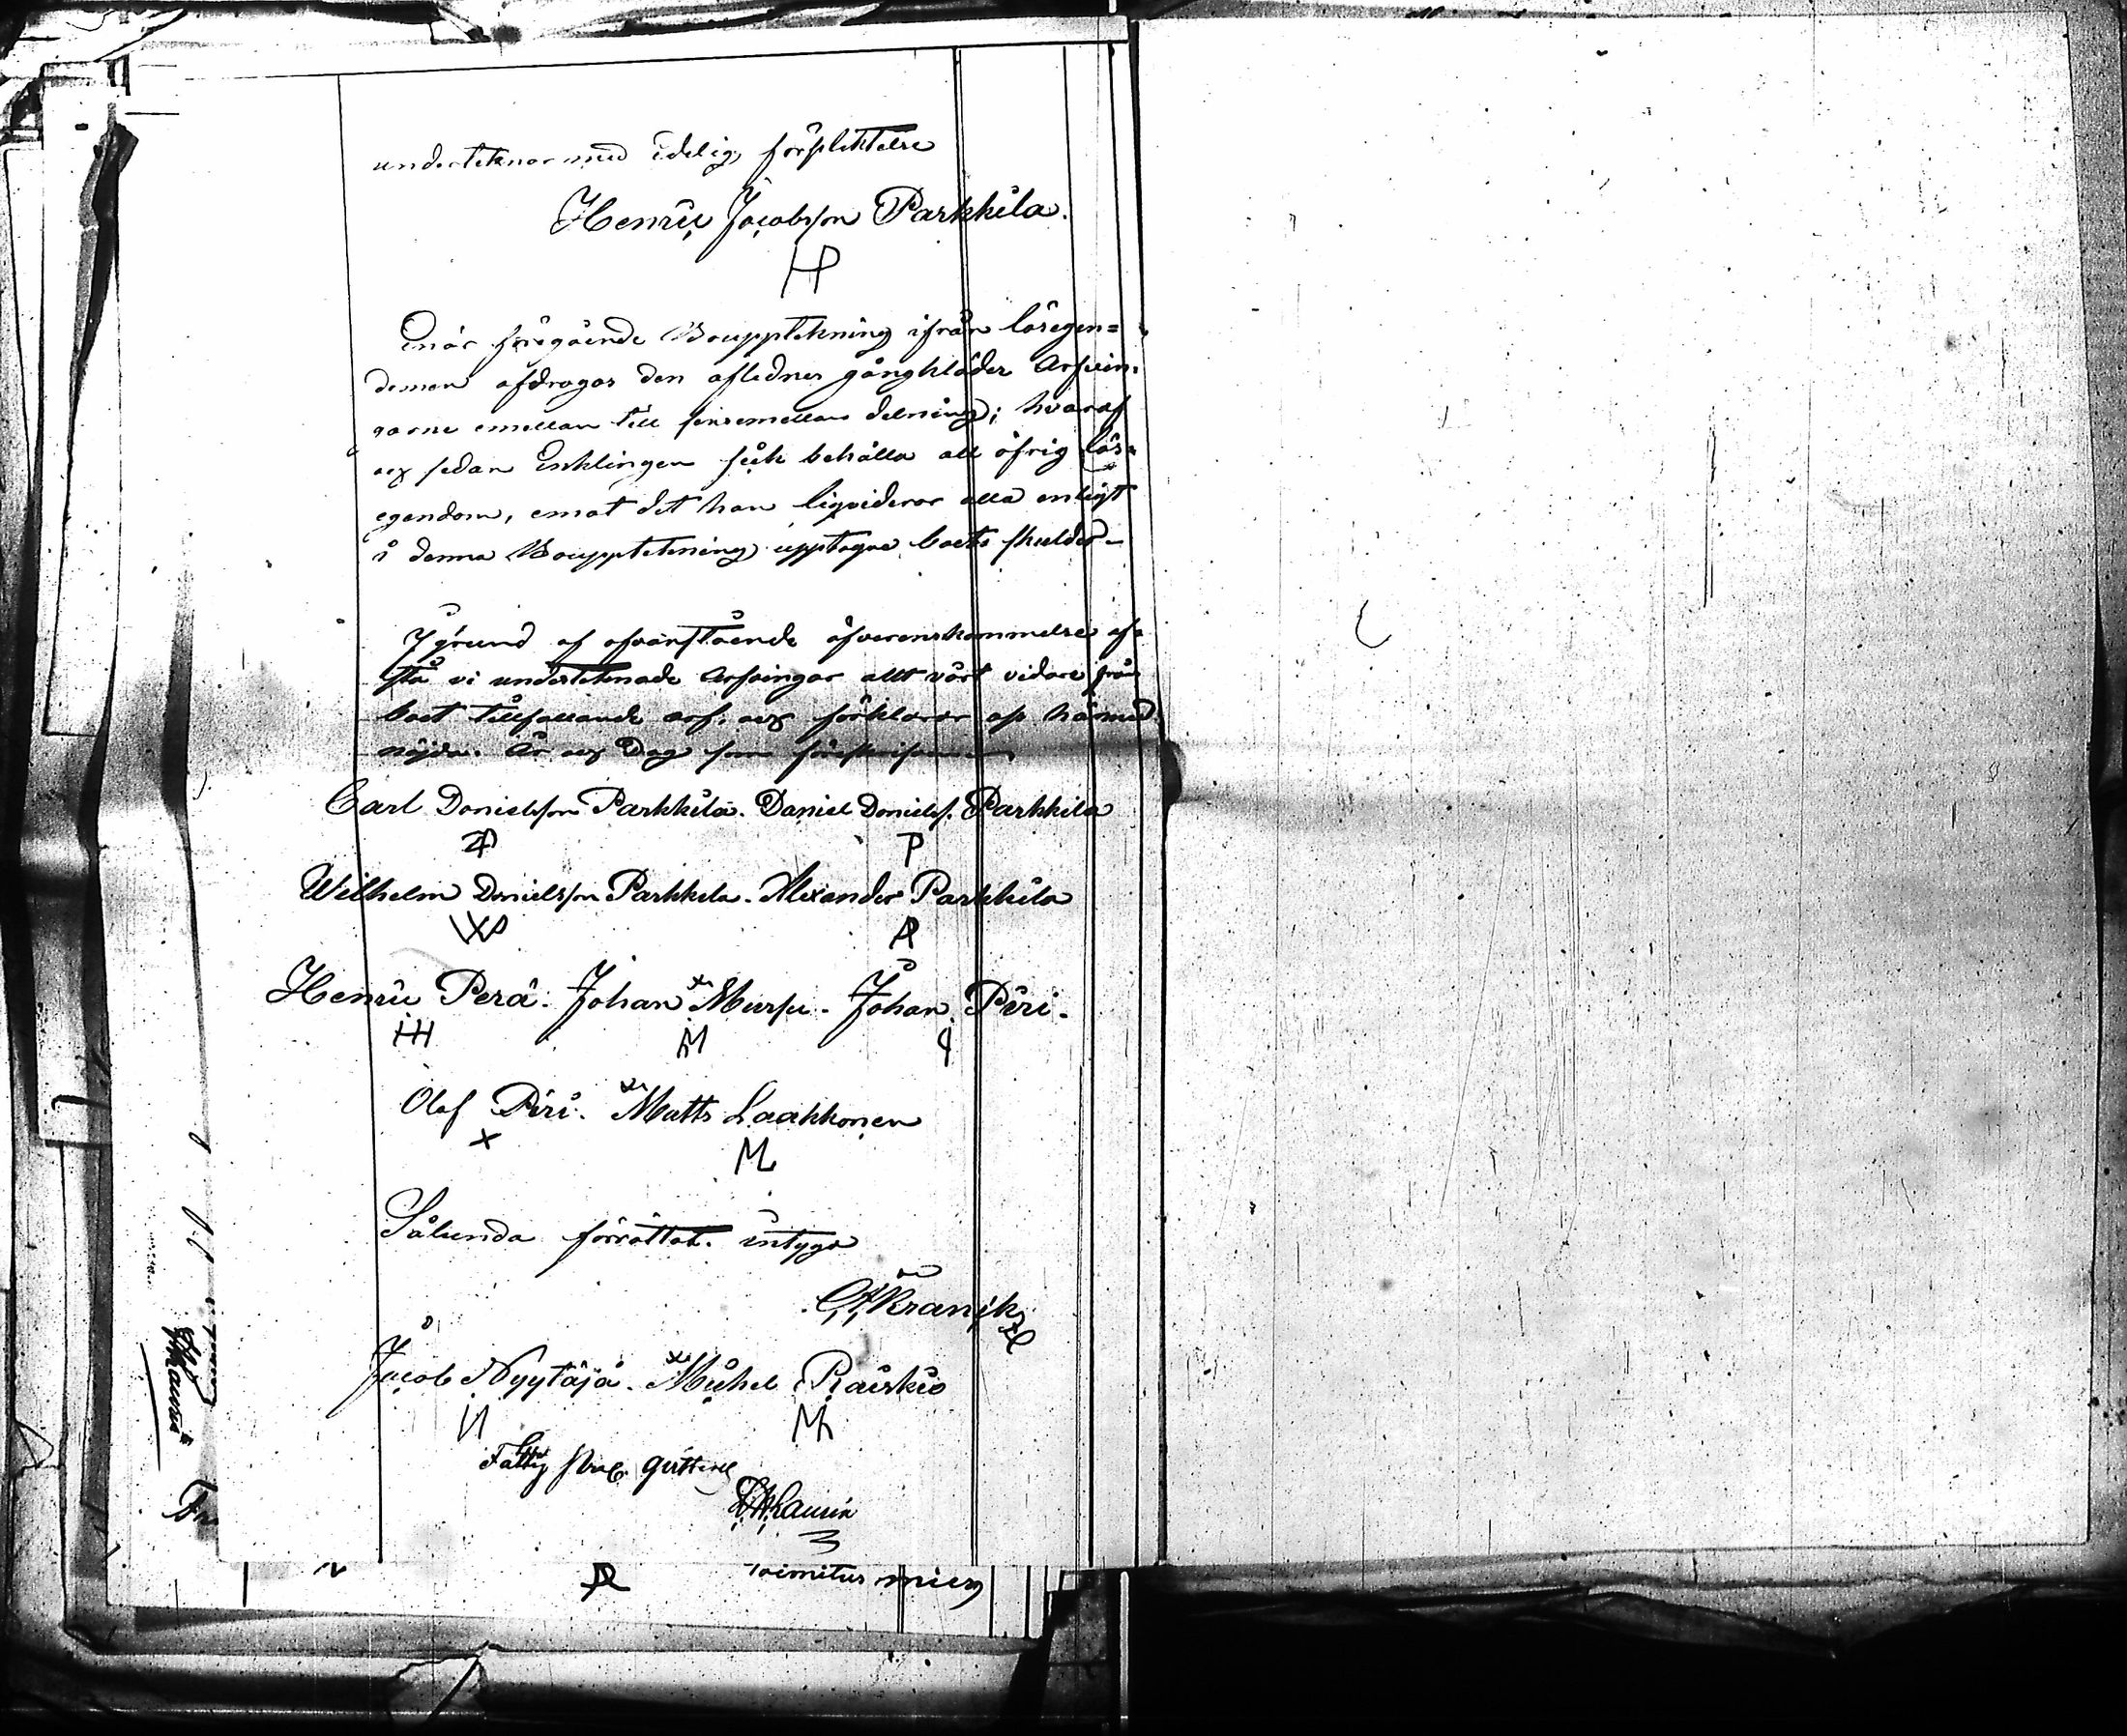 underteknar med edelig förpliktelse
Henric Jacobsson Parkkila.
HP
Enär föregående Bouppteckning ifrån lösegen=
domen afdragas den aflednes gångkläder Arfvin-
garne emellan till sinsemellan delning; hvaraf
och sedan Enklingen fick behålla all öfrig lös=
egendom, emot det han liqviderar alla enligt
i denna Bouppteckning upptagne boets skulder.
I grund af ofvanstående öfverenskommelse af=
stå vi undertecknade Arfvingar allt vårt vidare från
boet tillfallande arf, och förklarar oss härmed
nöjda. År och Dag som förskrifvne
Carl Danielsson Parkkila. Daniel Daniels. Parkkila
P
Wilhelm Danielsson Parkkila. Alexander Parkkila
WP AP
Henric Perä. Johan Mursu. Johan Piri.
HH M
Olof Piri. Matts Laakkonen
X ML
Sålunda förrättat. intyga
Kranck
Jacob Nyytäjä. Michel Raiskio
N MR
Fattig pro. qvitteras
Lauren
toimitus mies